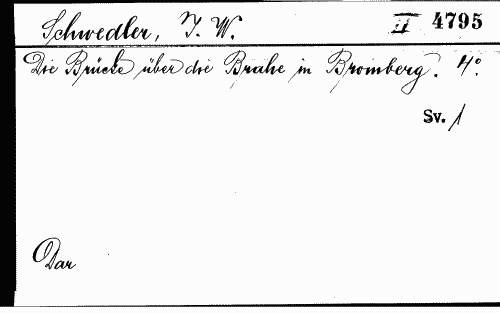 Schwedler, J. W. II 4795
Die Brücke über die Brahe in Bromberg. 4°.
Sv. 1
Dar